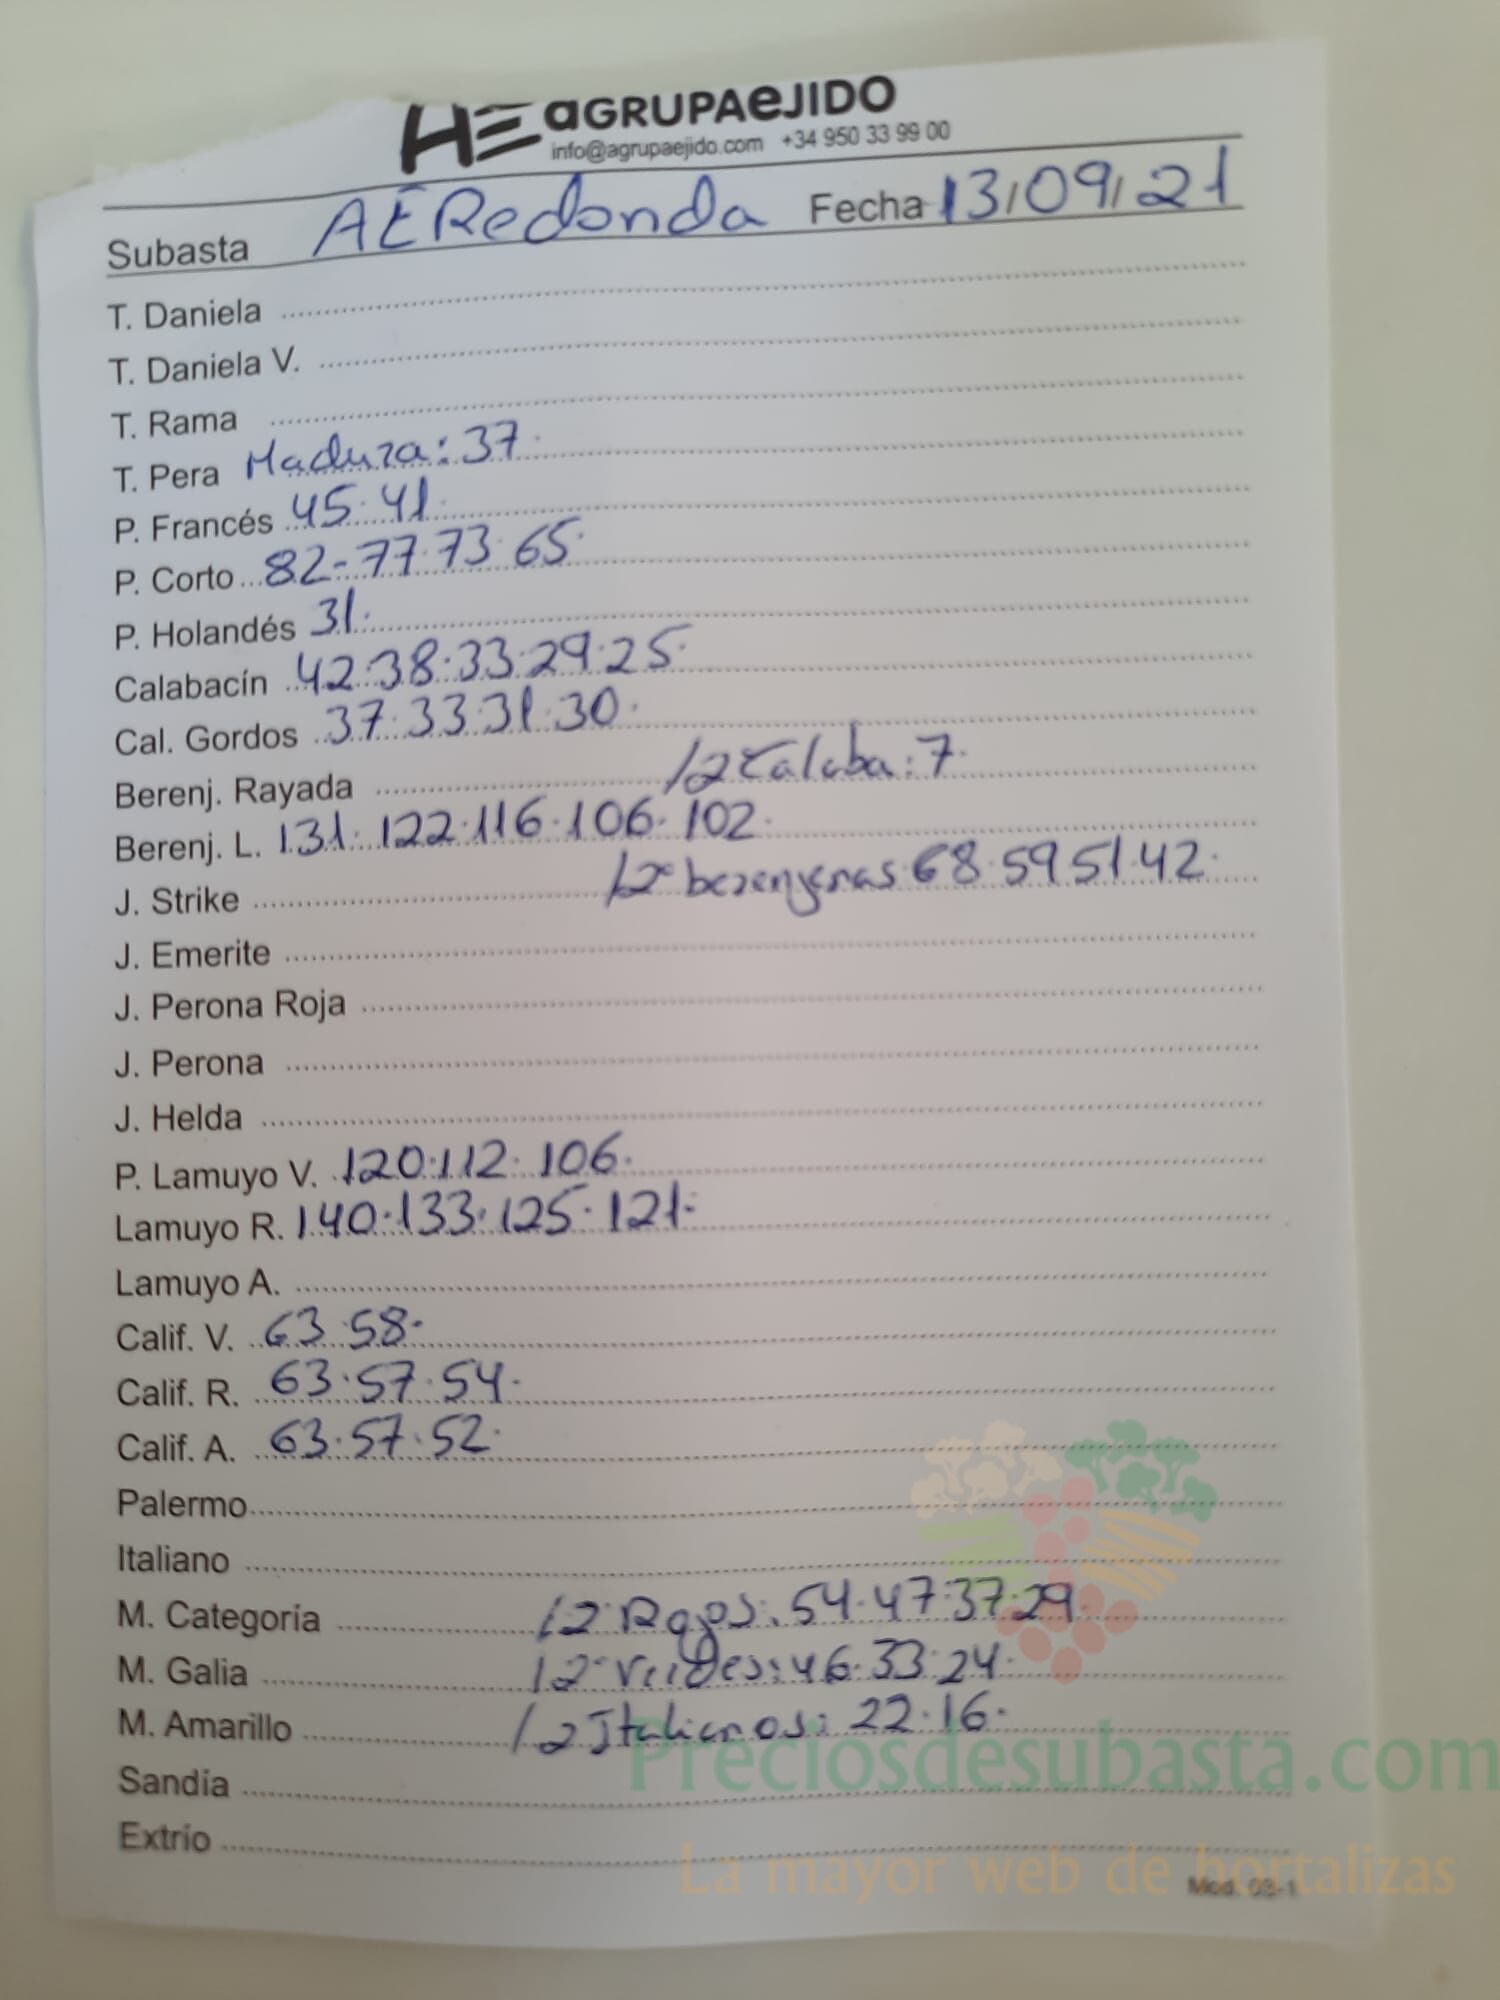 AGRUPAEJIDO
info@agrupaejido.com +34 950 33 99 00
Subasta AE Redonda Fecha 13/09/21
T. Daniela
T. Daniela V.
T. Rama
T. Pera Madura: 37.
P. Francés 45. 41.
P. Corto 82-77.73.65.
P. Holandés 31.
Calabacín 42.38.33.29.25.
Cal. Gordos 37.33.31.30.
Berenj. Rayada /2 Calaba: 7.
Berenj. L. 131. 122.116.106.102.
J. Strike /2 berenjenas 68.59 51.42.
J. Emerite
J. Perona Roja
J. Perona
J. Helda
P. Lamuyo V. 120.112.106.
Lamuyo R. 140.133.125.121.
Lamuyo A.
Calif. V. 63.58.
Calif. R. 63.57.54.
Calif. A. 63.57.52.
Palermo
Italiano
M. Categoría /2 Rojos: 54.47.37.29.
M. Galia /2 Verdes: 46.33.24.
M. Amarillo /2 Italianos: 22.16.
Preciosdesubasta.com
Sandía
Extrío
La mayor web de hortalizas
Mod. 03-1